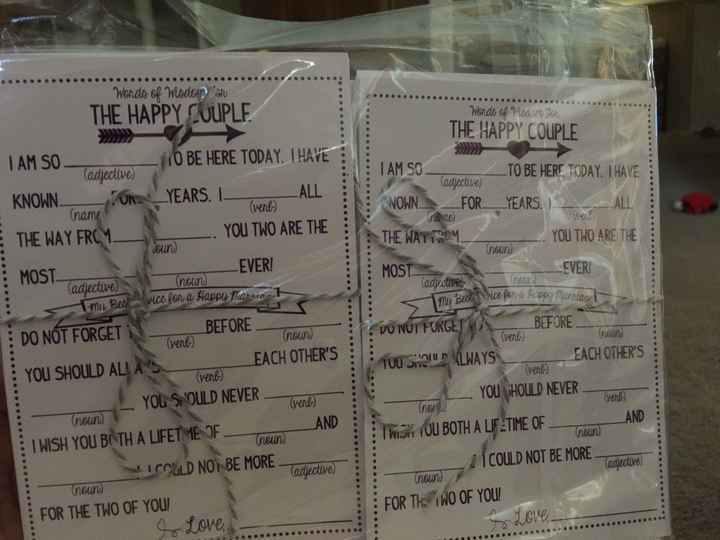 Words of Wisdom for
THE HAPPY COUPLE
I AM SO ____ TO BE HERE TODAY. I HAVE
(adjective)
KNOWN ____ FOR ____ YEARS. I ____ ALL
(name) (verb)
THE WAY FROM ____. YOU TWO ARE THE
(noun)
MOST ____ ____ EVER!
(adjective) (noun)
My Best Advice for a Happy Marriage
DO NOT FORGET ____ BEFORE ____.
(verb) (noun)
YOU SHOULD ALWAYS ____ EACH OTHER'S
(verb)
____. YOU SHOULD NEVER ____.
(noun) (verb)
I WISH YOU BOTH A LIFETIME OF ____ AND
(noun)
____. I COULD NOT BE MORE ____
(noun) (adjective)
FOR THE TWO OF YOU!
Love, ____
Words of Wisdom for
THE HAPPY COUPLE
I AM SO ____ TO BE HERE TODAY. I HAVE
(adjective)
KNOWN ____ FOR ____ YEARS. I ____ ALL
(name) (verb)
THE WAY FROM ____. YOU TWO ARE THE
(noun)
MOST ____ ____ EVER!
(adjective) (noun)
My Best Advice for a Happy Marriage
DO NOT FORGET ____ BEFORE ____.
(verb) (noun)
YOU SHOULD ALWAYS ____ EACH OTHER'S
(verb)
____. YOU SHOULD NEVER ____.
(noun) (verb)
I WISH YOU BOTH A LIFETIME OF ____ AND
(noun)
____. I COULD NOT BE MORE ____
(noun) (adjective)
FOR THE TWO OF YOU!
Love, ____